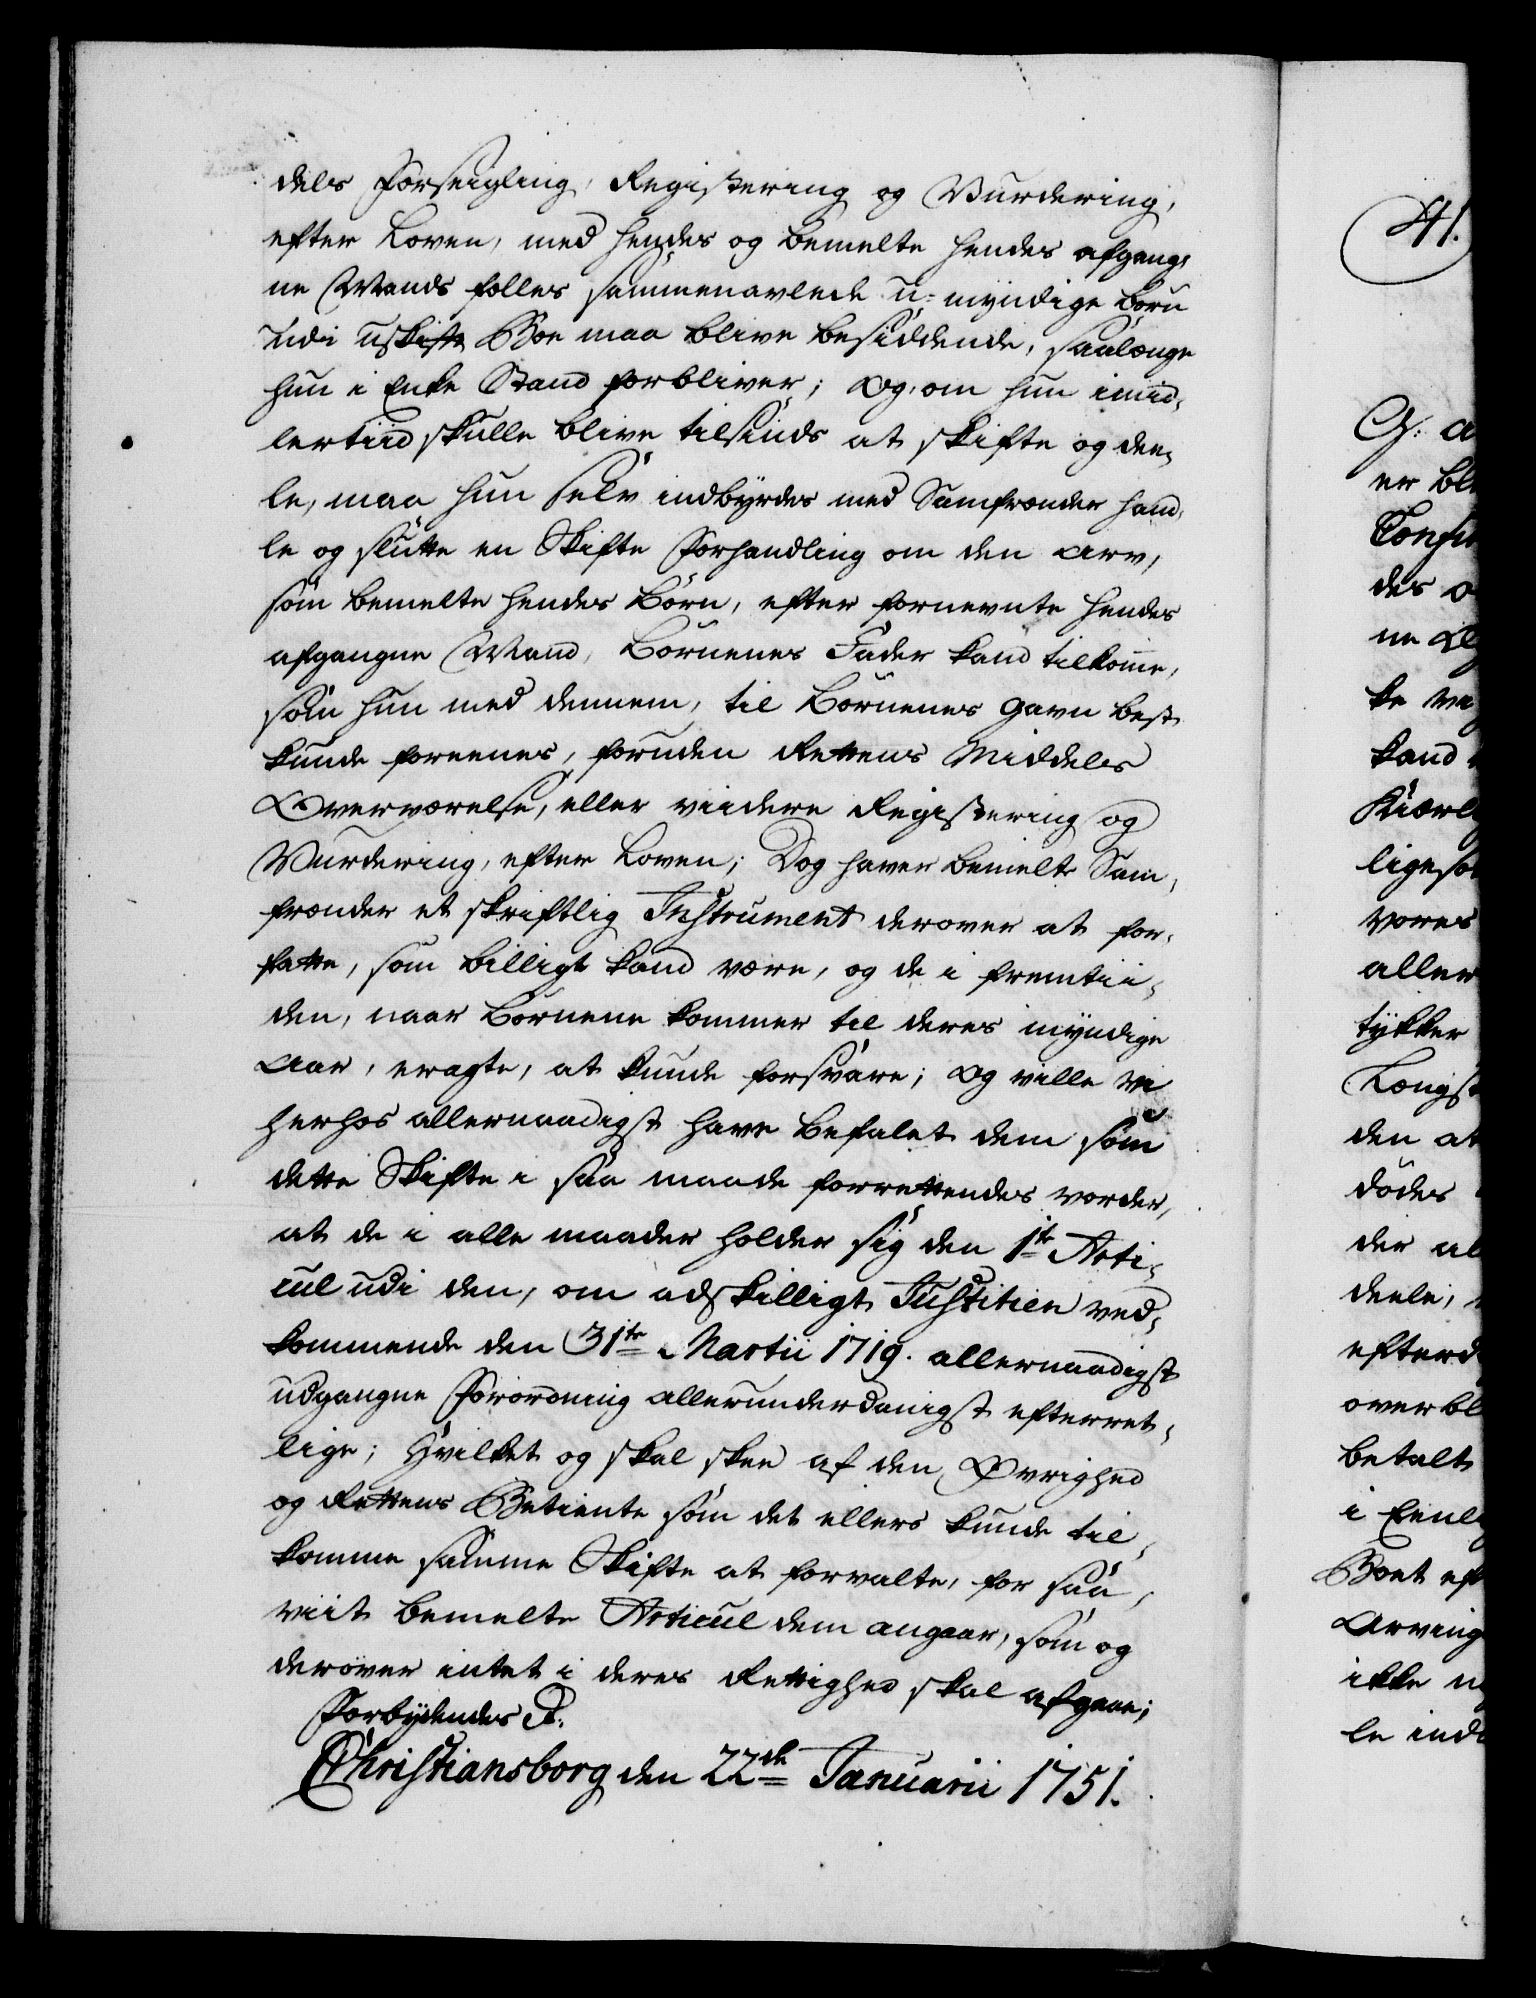 dels Forseigling, Registering og Vurdering,
efter Loven, med hendes og bemelte hendes afgang¬
ne Mands felles sammenavlede u-myndige børn
udi uskifte Boe maa blive besiddende, saalænge
hun i Enke Stand forbliver; Og, om hun imid¬
lertiid skulle blive tilsinds at skifte og dee¬
le, maa hun selv indbyrdes med Samfrænder hand¬
le og slutte en Skifte Forhandling om den Arv,
som bemelte hendes Børn, efter fornevnte hendes
afgangne Mand, Børnenes Fader kand tilkomme,
som hun med dennem, til Børnenes Gavn best
kunde foreenes, foruden Rettens Middels
Overværelse, eller viidere Registering og
Vurdering, efter Loven; Dog haver bemelte Sam¬
frænder et skriftlig Instrument derover at for¬
fatte, som billigt kand være, og de i fremtii¬
den, naar Børnene kommer til deres myndige
Aar, eragte, at kunde forsvare; Og ville Vi
herhos allernaadigst have befalet dem som
dette Skifte i saa maade forrettendes vorder,
at de i alle maader holder sig den 1te Arti¬
cul udi den, om adskilligt Justitien ved¬
kommende den 31te Martii 1719. allernaadigst
udgangne Forordning allerunderdanigst efterret¬
lige; Hvilket og skal skee af den Øvrighed
og Rettens Betiente som det ellers kunde til¬
komme samme Skifte at forvalte, for saa¬
viit bemelte Articul dem angaar, som og
derover intet i deres Rettighed skal afgaae;
Forbydendes &.
Christiansborg den 22de Januarii 1751.
41.
G: a
er bl
Confir
des o
ne
ke
kand
Kierl
ligeso
vores
aller
tykker
Længst
den at
dødes
der al
deele,
efterd
overbl
betalt
i Eenl
Boet ef
Arving
ikke
le ind